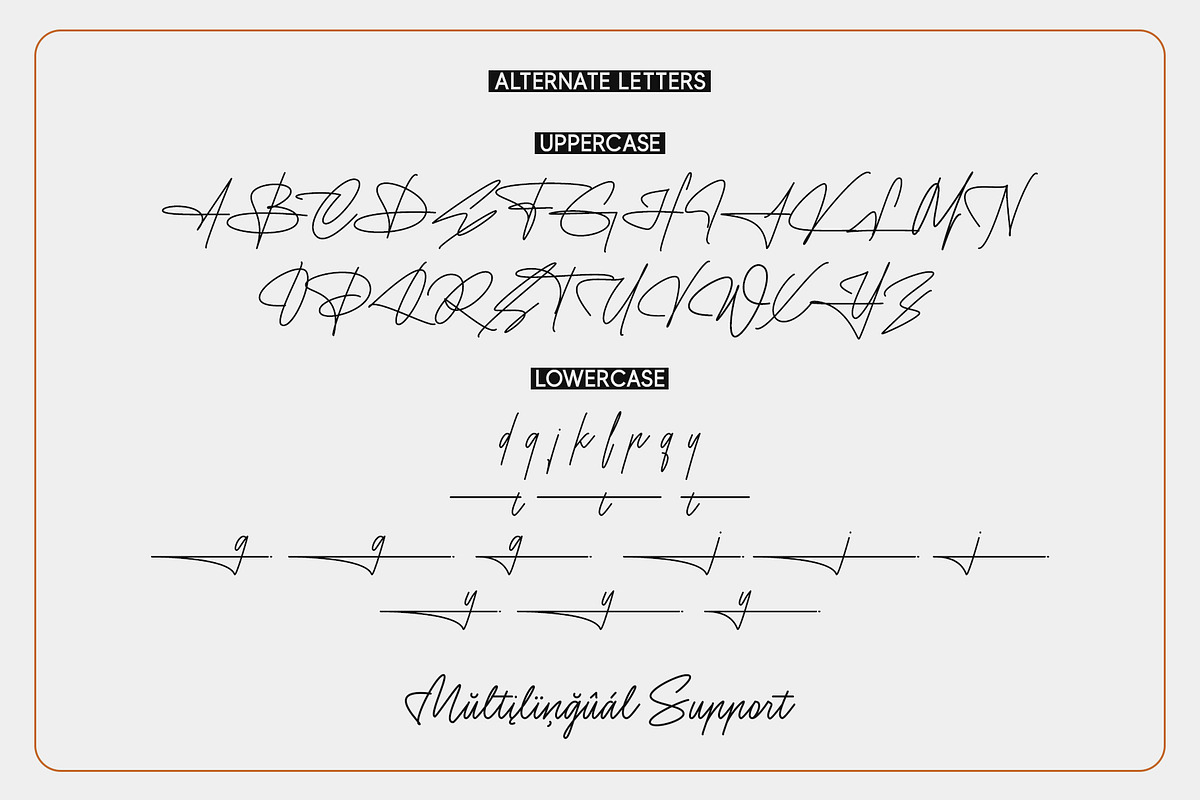 ALTERNATE LETTERS
UPPERCASE
ABCDEFGHIJKLMN
OPQRSTUVWXYZ
LOWERCASE
d g j k l p q y
t t t
g g g j j j
y y y
Mŭltįlïņğûál Support